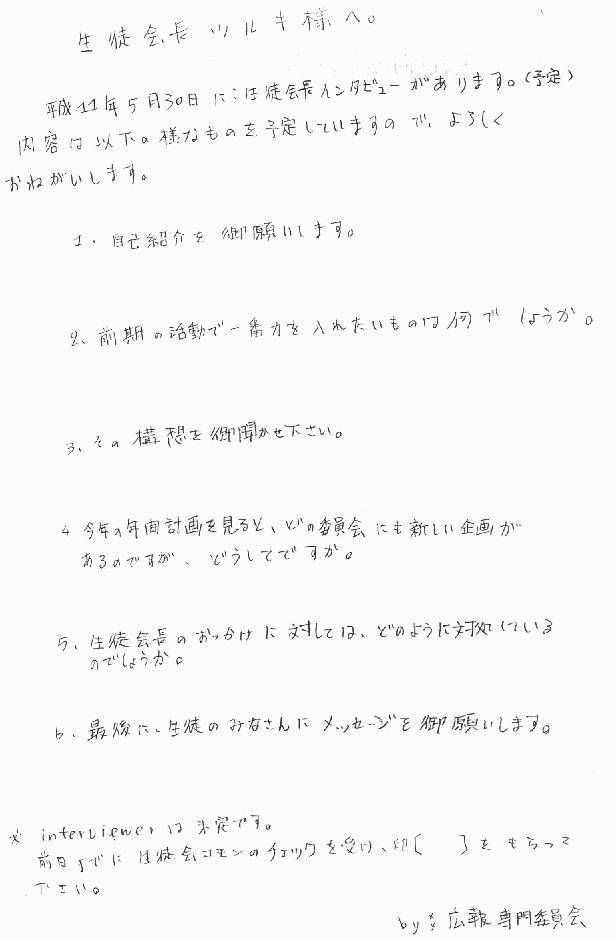 生徒会長ツルキ様へ。
平成11年5月30日に生徒会長インタビューがあります。(予定)
内容は以下の様なものを予定していますので、よろしく
おねがいします。
1、自己紹介を御願いします。
2、前期の活動で一番力を入れたいものは何でしょうか。
3、その構想を御聞かせ下さい。
4 今年の年間計画を見ると、どの委員会にも新しい企画が
あるのですが、どうしてですか。
5、生徒会長のおっかけに対しては、どのように対処している
のでしょうか。
6、最後に、生徒のみなさんにメッセージを御願いします。
※ interviewerは未定です。
前日までに生徒会コモンのチェックを受け、印[ ]をもらって
下さい。
by※広報専門委員会